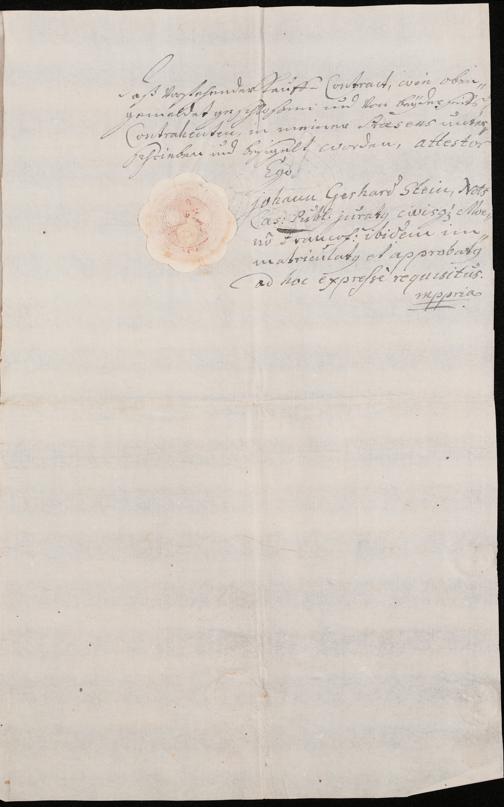 Daß Vorstehender Kauff-Contract, wie oben=
gemeldet geschlossen und von beyderseits
Contrahenten, in meiner Præsens unter=
schrieben und besigelt worden, attestor
Ego
Johann Gerhard Stein, Nots
Cæs: Publ: juratq civisq Moe=
nō Francof: ibidem im=
matriculatq et approbatq
ad hoc expressè requisitus.
mppria